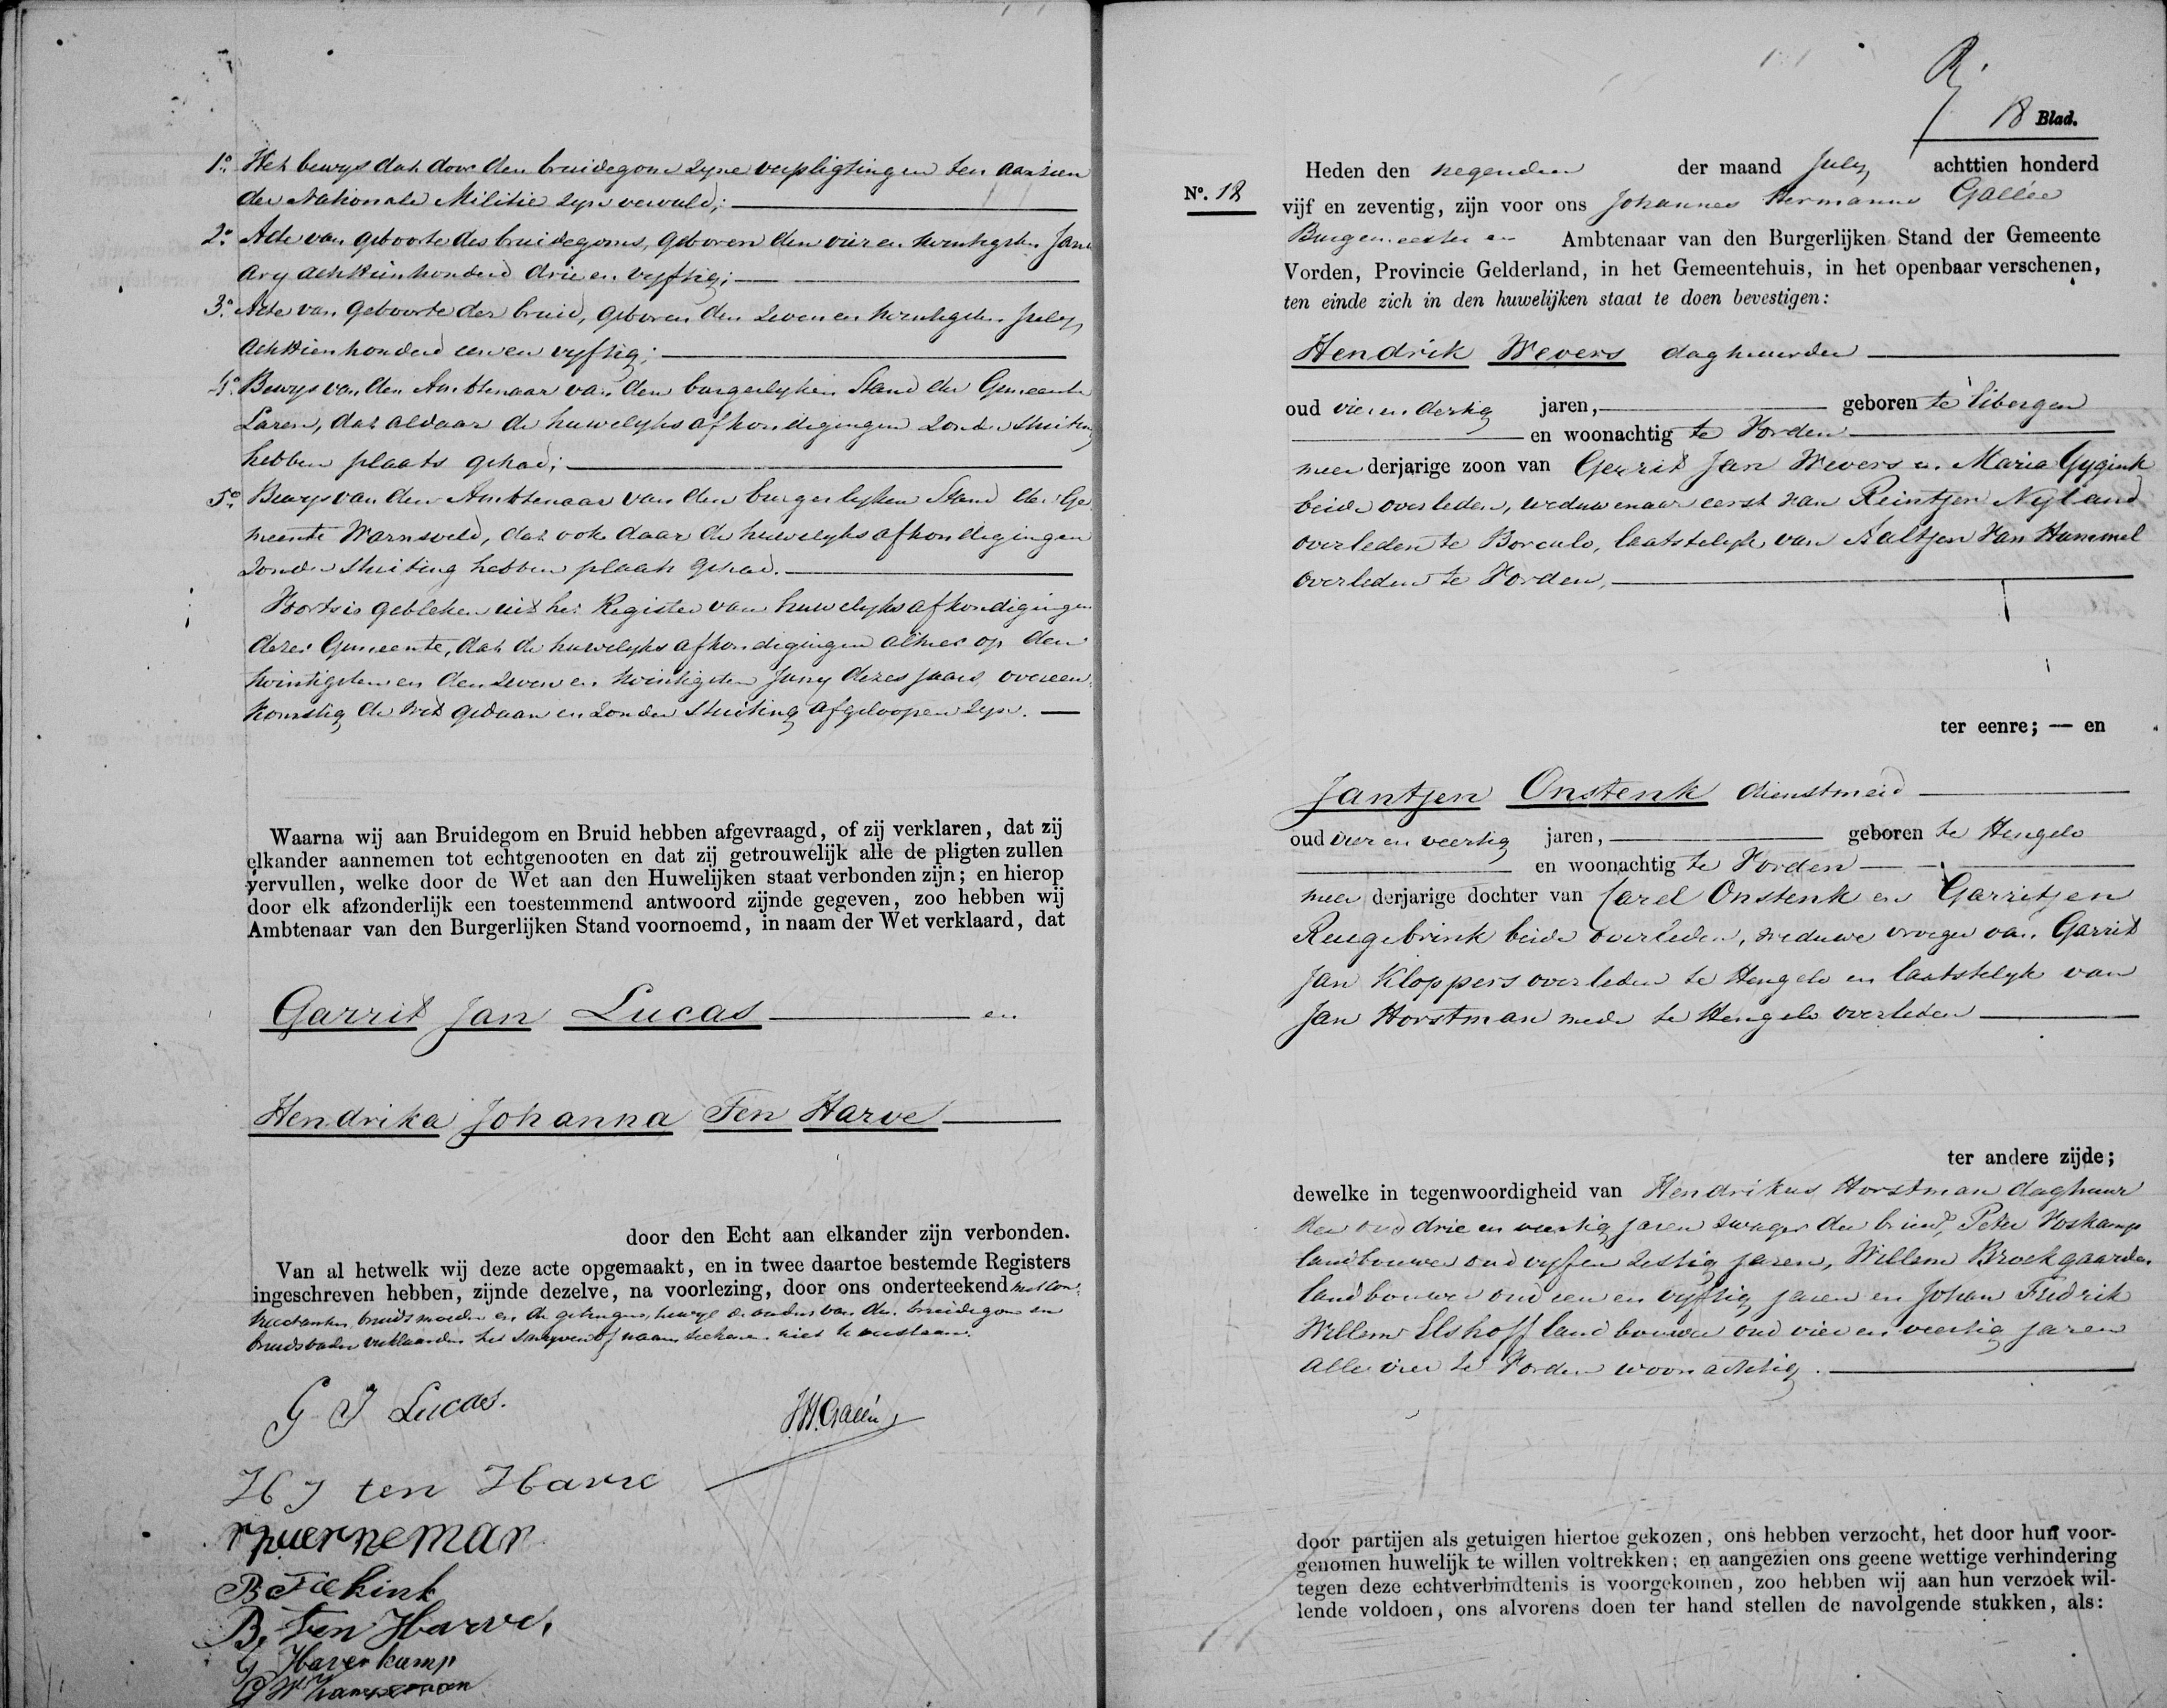 1o. Het bewys dat door den bruidegom zyne verpligtingen ten aanzien
der Nationale Militie zyn vervuld;
2o. Acte van geboorte des bruidegoms, geboren den vier en twintigsten Janu
ary achttienhonderd drie en vyftig;
3o. Acte van geboorte der bruid, geboren den zeven en twintigsten July
achttienhonderd een en vyftig;
4o. Bewys van den Ambtenaar van den burgerlyken Stand der Gemeente
Laren, dat aldaar de huwelyks afkondigingen zonder stuiting
hebben plaats gehad;
5o. Bewys van den Ambtenaar van den burgerlyken Stand der Ge
meente Warnsveld, dat ook daar de huwelyks afkondigingen
zonder stuiting hebben plaats gehad.
Voorts is gebleken uit het Register van huwelyks afkondigingen
dezer Gemeente, dat de huwelyks afkondigingen alhier op den
twintigsten en den zeven en twintigsten Juny dezes jaars, overeen
komstig de wet gedaan en zonder stuiting afgeloopen zyn.
Waarna wij aan Bruidegom en Bruid hebben afgevraagd, of zij verklaren, dat zij
elkander aannemen tot echtgenooten en dat zij getrouwelijk alle de pligten zullen
vervullen, welke door de Wet aan den Huwelijken staat verbonden zijn; en hierop
door elk afzonderlijk een toestemmend antwoord zijnde gegeven, zoo hebben wij
Ambtenaar van den Burgerlijken Stand voornoemd, in naam der Wet verklaard, dat
Garrit Jan Lucas en
Hendrika Johanna Ten Harve
door den Echt aan elkander zijn verbonden.
Van al hetwelk wij deze acte opgemaakt, en in twee daartoe bestemde Registers
ingeschreven hebben, zijnde dezelve, na voorlezing, door ons onderteekend met con
tractanten, bruids moeder en de getuigen, terwyl de ouders van den bruidegom en
bruids vader verklaarden het schryven of naam teekenen niet te verstaan.
G J Lucas.
J.H. Gallée
H J ten Harve
B Fokkink
B. Ten Harve,
G Haverkamp
R.
18 Blad.
No. 18
Heden den negenden der maand July achttien honderd
vijf en zeventig, zijn voor ons Johannes Hermanus Gallée
Burgemeester en Ambtenaar van den Burgerlijken Stand der Gemeente
Vorden, Provincie Gelderland, in het Gemeentehuis, in het openbaar verschenen,
ten einde zich in den huwelijken staat te doen bevestigen:
Hendrik Wevers daghuurder
oud vier en dertig jaren, geboren te Eibergen
en woonachtig te Vorden
meerderjarige zoon van Gerrit Jan Wevers en Maria Gygink
beide overleden, weduwenaar eerst van Reintjen Nyland
overleden te Borculo, laatstelyk van Aaltjen Van Hummel
overleden te Vorden,
ter eenre; — en
Jantjen Onstenk dienstmeid
oud vier en veertig jaren, geboren te Hengelo
en woonachtig te Vorden
meerderjarige dochter van Carel Onstenk en Garritjen
Reugebrink beide overleden, weduwe vroeger van Garrit
Jan Kloppers overleden te Hengelo en laatstelyk van
Jan Horstman mede te Hengelo overleden
ter andere zijde;
dewelke in tegenwoordigheid van Hendrikus Horstman daghuur
der oud drie en veertig jaren zwager der bruid, Peter Voskamp
landbouwer oud vyf en zestig jaren, Willem Broekgaarden
landbouwer oud een en vyftig jaren en Johan Fredrik
Willem Elshoff landbouwer oud vier en veertig jaren
alle vier te Vorden woonachtig.
door partijen als getuigen hiertoe gekozen, ons hebben verzocht, het door hun voor-
genomen huwelijk te willen voltrekken; en aangezien ons geene wettige verhindering
tegen deze echtverbindtenis is voorgekomen, zoo hebben wij aan hun verzoek wil-
lende voldoen, ons alvorens doen ter hand stellen de navolgende stukken, als: